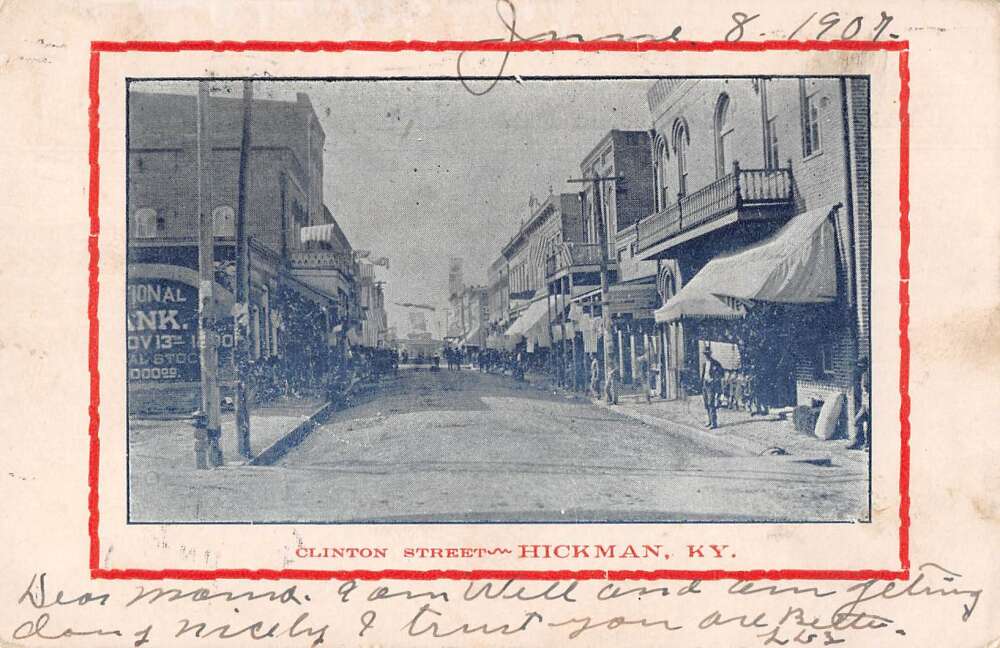 June 8. 1907.
IONAL
NK.
OV 13TH 1900
AL STOCK
000.00
CLINTON STREET HICKMAN, KY.
Dear mama. I am Well and am geting
along nicely I trust you are Better.